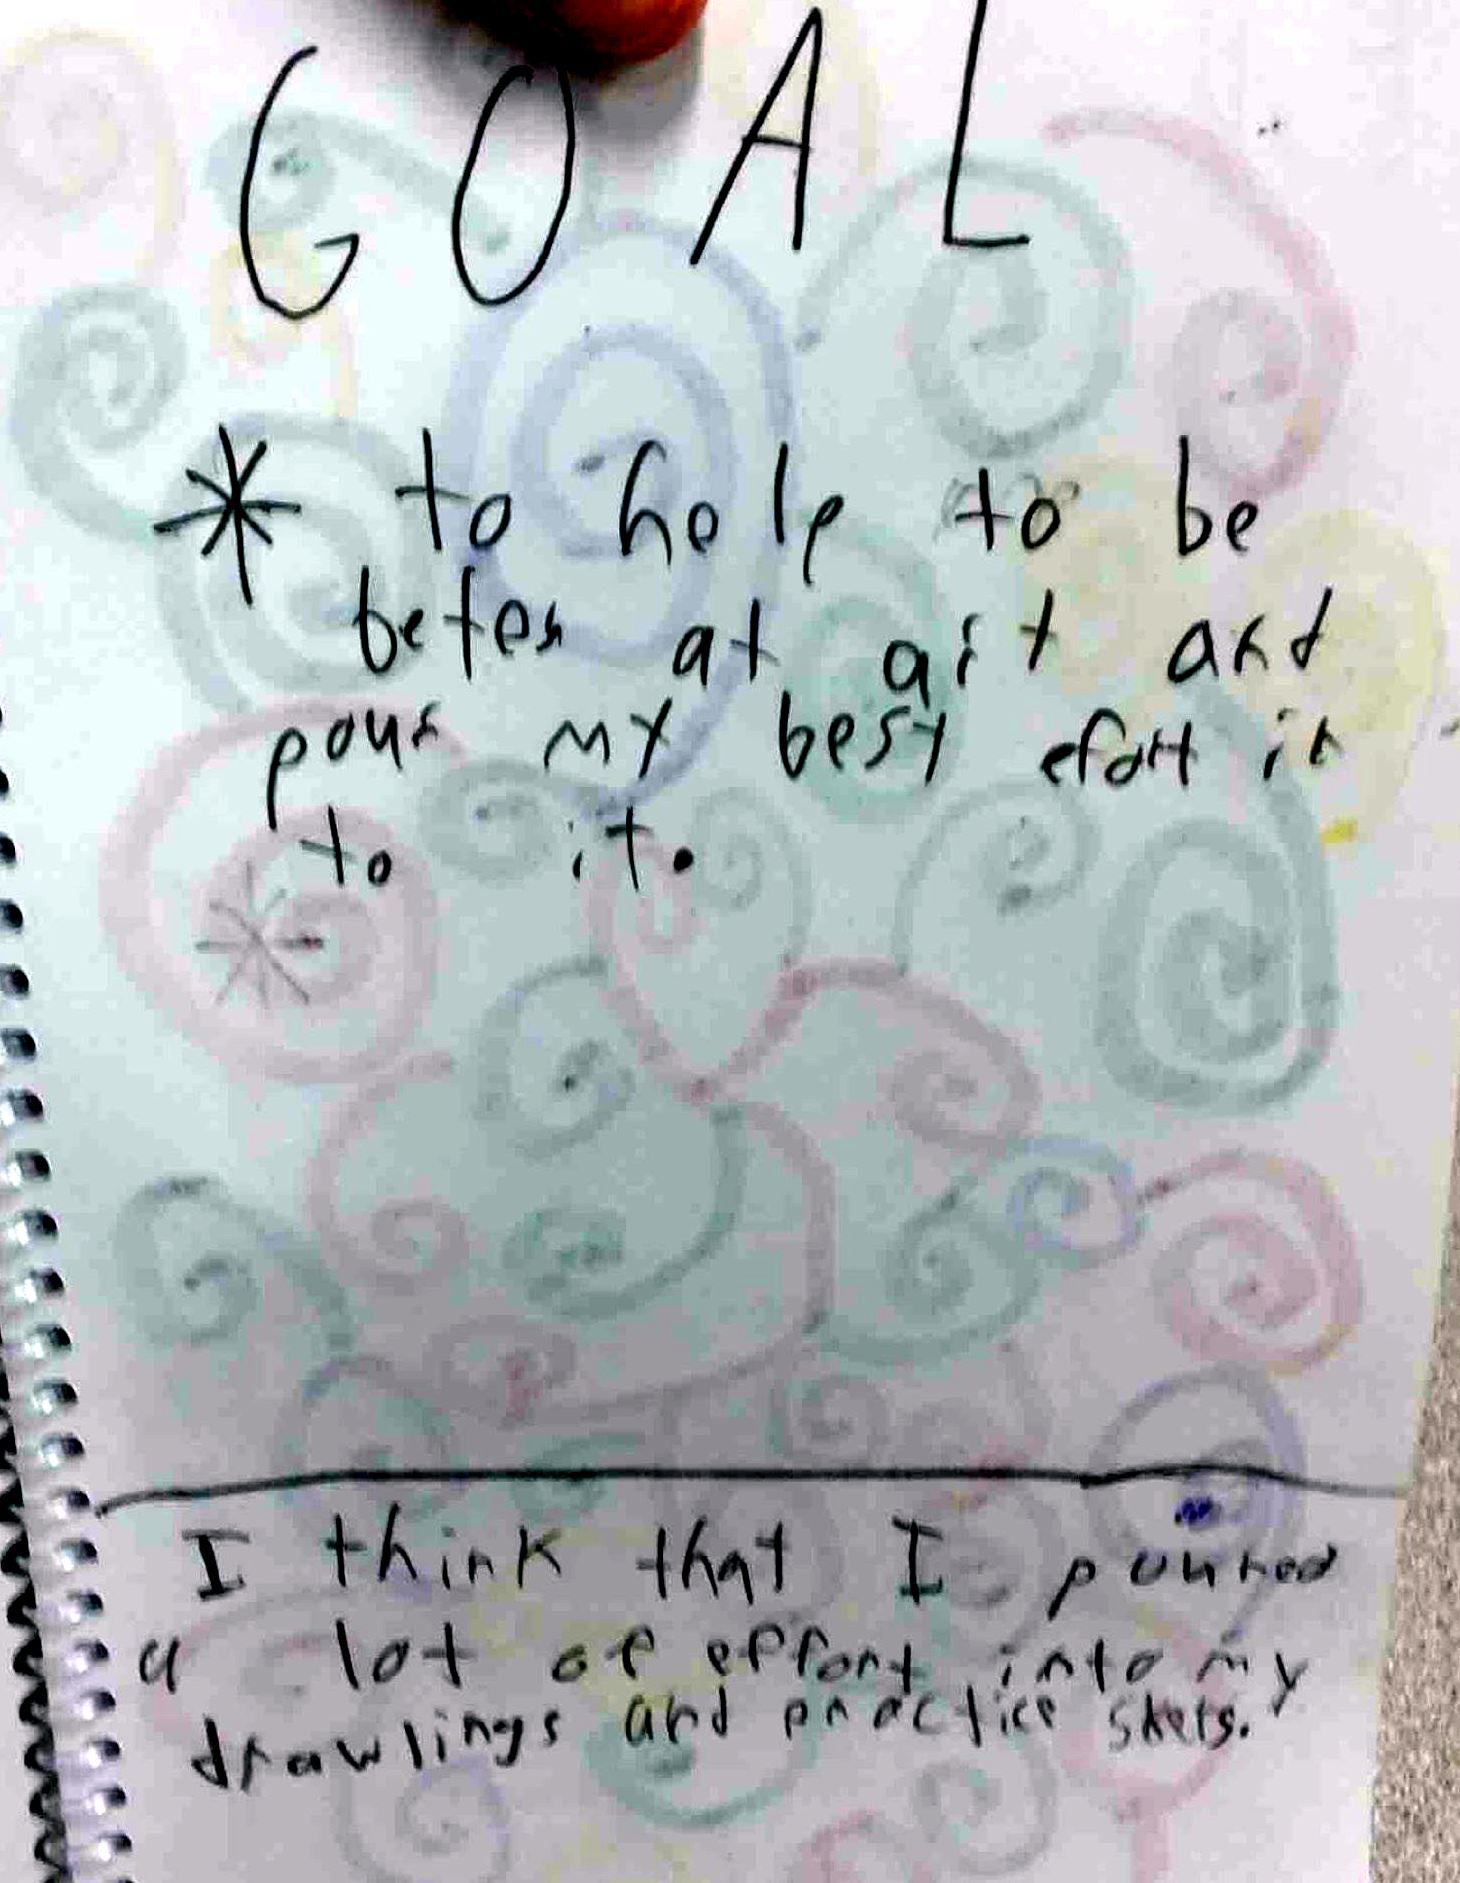 GOAL
* to help to be
beter at art and
pour my best efort in
to it.
*
I think that I poured
a lot of effort into my
drawlings and practice skets.